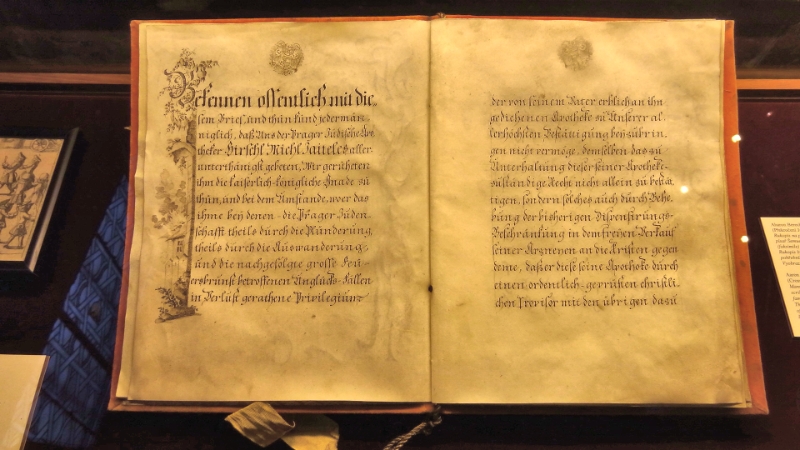 Bekennen offentlich mit die-
sem Brief, und thun kund jederman-
niglich, daß Uns der Prager Jüdische Apo-
theker Hirschl Michl Jaiteles aller-
unterthänigst gebeten, Wir geruheten
ihm die kaiserlich-königliche Gnade zu
thun, und bei dem Umstande, wo er das
ihme bey denen die Prager Juden-
schafft theils durch die Plünderung,
theils durch die Auswanderung,
und die nachgefolgte grosse Feu-
ersbrunst betroffenen Unglücks-Fällen
in Verlust gerathene Privilegium
der von seinem Vater erblich an ihn
gediehenen Apotheke zu Unserer al-
lerhöchsten Bestätigung beyzubrin-
gen nicht vermöge, demselben das zu
Unterhaltung dieser seiner Apotheke
zuständige Recht nicht allein zu bestä-
tigen, sondern solches auch durch Behe-
bung der bisherigen Dispensirungs-
Beschränkung in dem freyen Verkauf
seiner Arzneyen an die Kristen gegen
deme, daß er diese seine Apotheke durch
einen ordentlich-geprüften christli-
chen Provisor mit den übrigen dazu